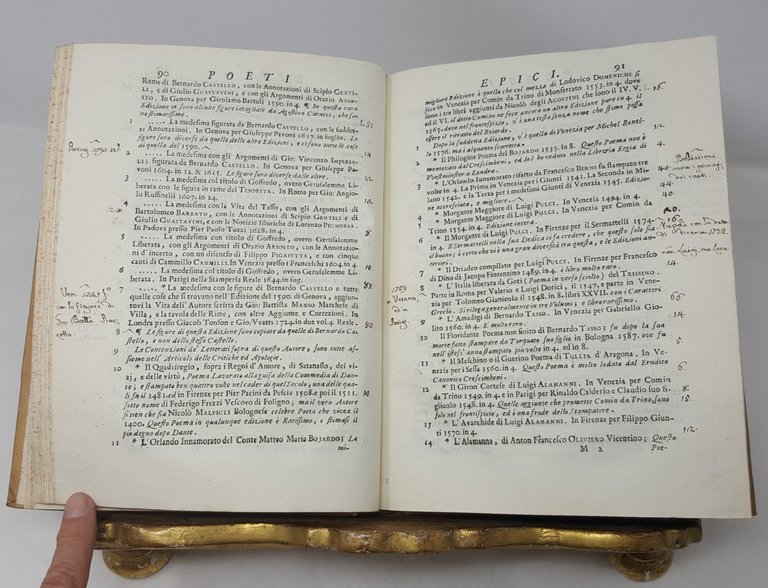 90 POETI
Rame di Bernardo CASTELLO, con le Annotazioni di Scipio GENTI-
LI, e di Giulio GUASTAVINI, e con gli Argomenti di Orazio ARIO-
STO. In Genova per Girolamo Bartoli 1590. in 4. ¶ In questa rara
Edizione vi sono alcune figure intagliate da Agostino Caracci, che sa-
no stimatissime.
1 . . . . . La medesima figurata da Bernardo CASTELLO, con le suddet-
te Annotazioni. In Genova per Giuseppe Pavoni 1617. in foglio. Le
figure sono diverse da quelle delle altre Edizioni, e ci sono tutte le cose
di quella del 1590.
2 . . . . . La medesima con gli Argomenti di Gio: Vincenzo IMPERIA-
figurata da Bernardo CASTELLO. In Genova per Giuseppe Pa-
voni 1604. in 12. & 1615. Le figure sono diverse dalle altre.
3 . . . . . La medesima col titolo di Goffredo, overo Gerusalemme Li-
berata, con le figure in rame del TEMPESTA. In Roma per Gio: Angio-
lo Ruffinelli 1607. in 24.
4 . . . . . La medesima con la Vita del TASSO, con gli Argomenti di
Bartolomeo BARBATO, con le Annotazioni di Scipio GENTILI e di
Giulio GUASTAVINI, e con le Notizie Istoriche di Lorenzo PIGNORIA.
In Padova presso Pier Paolo Tozzi 1628. in 4.
5 . . . . . La medesima col titolo di Goffredo, overo Gerusalemme
Liberata, con gli Argomenti di Orazio ARIOSTO, con le Annotazio-
ni d'incerto, con un discorso di Filippo PIGAFETTA, e con cinque
canti di Cammillo CAMMILLI. In Venezia presso i Franceschi 1604. in 4.
6 . . . . . La medesima col titolo di Goffredo, overo Gerusalemme
Liberata. In Parigi nella Stamperia Reale 1644. in fog.
7 * . . . . . La medesima con le figure di Bernardo CASTELLO e tutte
quelle cose che si trovano nell'Edizione del 1590. di Genova, aggiun-
tovi la Vita dell'Autore scritta da Gio: Battista MANSO Marchese di
Villa, e la tavole delle Rime, con altre Aggiunte, e Correzioni. In
Londra presso Giacob Tonson e Gio: Vvatts 1724. in due vol. 4. Reale.
8 ¶ Le figure di questa Edizione sono copiate da quelle di Bernardo CA-
stello, e non dello stesso Castello.
9 Le Contenzioni de' Letterati sopra di questo Autore, sono tutte assie-
me nell' Articolo delle Critiche ed Apologie.
10 * Il Quadriregio, sopra i Regni d'Amore, di Satanasso, dei vi-
zj, e delle virtù, Poema Lavorato alla guisa della Commedia di Dan-
te; e stampato ben quattro volte nel cader di quel Secolo, una delle qua-
li fu nel 1481. ed in Firenze per Pier Pacini da Pescia 1508. e poi il 1511.
sotto nome di Federigo Frezzi Vescovo di Foligno; ma il vero Autore
si tien che sia Nicolò MALPIGLI Bolognese celebre Poeta che viveva il
1400. Questo Poema in qualunque edizione è Rarissimo, e stimasi il
più degno dopo Dante.
11 * L'Orlando Innamorato del Conte Matteo Maria BOJARDO; LA
mi-
Parigi
12
14
4.
10.
8.
80.
EPICI. 91
migliore Edizione è quella che col mezzo di Lodovico DOMENICHI si
fece in Venezia per Comin da Trino di Monferrato 1553. in 4. dove
sono i tre libri aggiunti da Nicolò degli AGOSTINI che sono il IV. V.
ed il VI. il detto Comino ne fece ancora un'altra Edizione pure in 4. il
1565. dove nel frontespizio, v'è una testa senza nome che stimo possa
essere il ritratto del Bojardo.
1 Dopo la suddetta Edizione, v'è quella di Venezia per Michel Bonel-
lo 1576. ma è alquanto scorretta.
2 * Il Philogine Poema del BOJARDO 1535. in 8. Questo Poema non è
mentovato dal Crescimbeni, ed io l'ho veduto nella Libreria Regia di
Vvestminster a Londra.
3 * L'Orlando Innamorato rifatto da Francesco BERNI fu stampato tre
volte in 4. La Prima in Venezia per i Giunti 1541. La Seconda in Mi-
lano 1542. e la Terza per i medesimi Giunti di Venezia 1545. Edizio-
ne accresciuta, e migliore.
4 * Morgante Maggiore di Luigi PULCI. In Venezia 1494. in 4.
5 * Morgante Maggiore di Luigi PULCI. In Venezia per Comin da
Trino 1554. in 4. Edizione intera.
6 * Il Morgante di Luigi PULCI. In Firenze per il Sermartelli 1574.
in 4. Il Sermartelli nella sua Dedica fa credere, che questo solo sia
il buono; è certo che vi è una gran diversità tra questa, e le Edizioni an-
teriori.
7 * Il Driadeo compilato per Luigi PULCI. In Firenze per Francesco
di Dino di Jacopo Fiorentino 1489. in 4. è libro molto raro.
8 * L'Italia liberata da Goti (Poema in verso sciolto) del TRISSINO.
Parte in Roma per Valerio e Luigi Dorici, il 1547. e parte in Vene-
zia per Tolomeo Gianicolo il 1548. in 8. libri XXVII. con i Caratteri
Greci. Si rilega generalmente in tre Volumi, è libro rarissimo.
9 * L'Amadigi di Bernardo TASSO. In Venezia per Gabriello Gio-
lito 1560. in 4. E molto raro.
10 Il Floridante Poema non finito di Bernardo TASSO; fu dopo la sua
morte fatto stampare da Torquato suo figlio in Bologna 1587. ove fu
nell'istess' anno stampato più volte in 4. ed in 8.
11 * Il Meschino o il Guerino Poema di TULLIA d'Aragona. In Ve-
nezia per i Sessa 1560. in 4. Questo Poema è molto lodato dal Erudito
Canonico Crescimbeni.
12 * Il Giron Cortese di Luigi ALAMANNI. In Venezia per Comin
da Trino 1549. in 4. e in Parigi per Rinaldo Calderio e Claudio suo fi-
gliuolo 1548. in 4. Quelle aggiunte che promette Comin da Trino, sono
solo nel frontispicio, ed è una frode dello Stampatore.
13 * L'Avarchide di Luigi ALAMANNI. In Firenze per Filippo Giun-
ti 1570. in 4.
14 * L'Alamanna, di Anton Francesco OLIVIERO Vicentino; Questo
M 2 Poe-
16.
12.
40
40.
14.
6.
8.
15.
12.